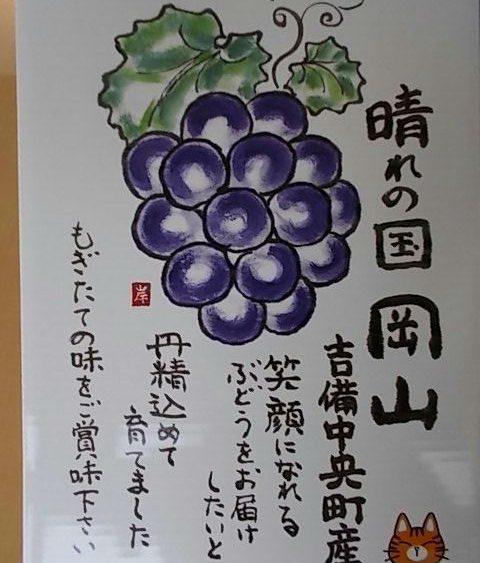 晴れの国 岡山
吉備中央町産
笑顔になれる
ぶどうをお届け
したいと
丹精込めて
育てました
もぎたての味をご賞味下さい
岸